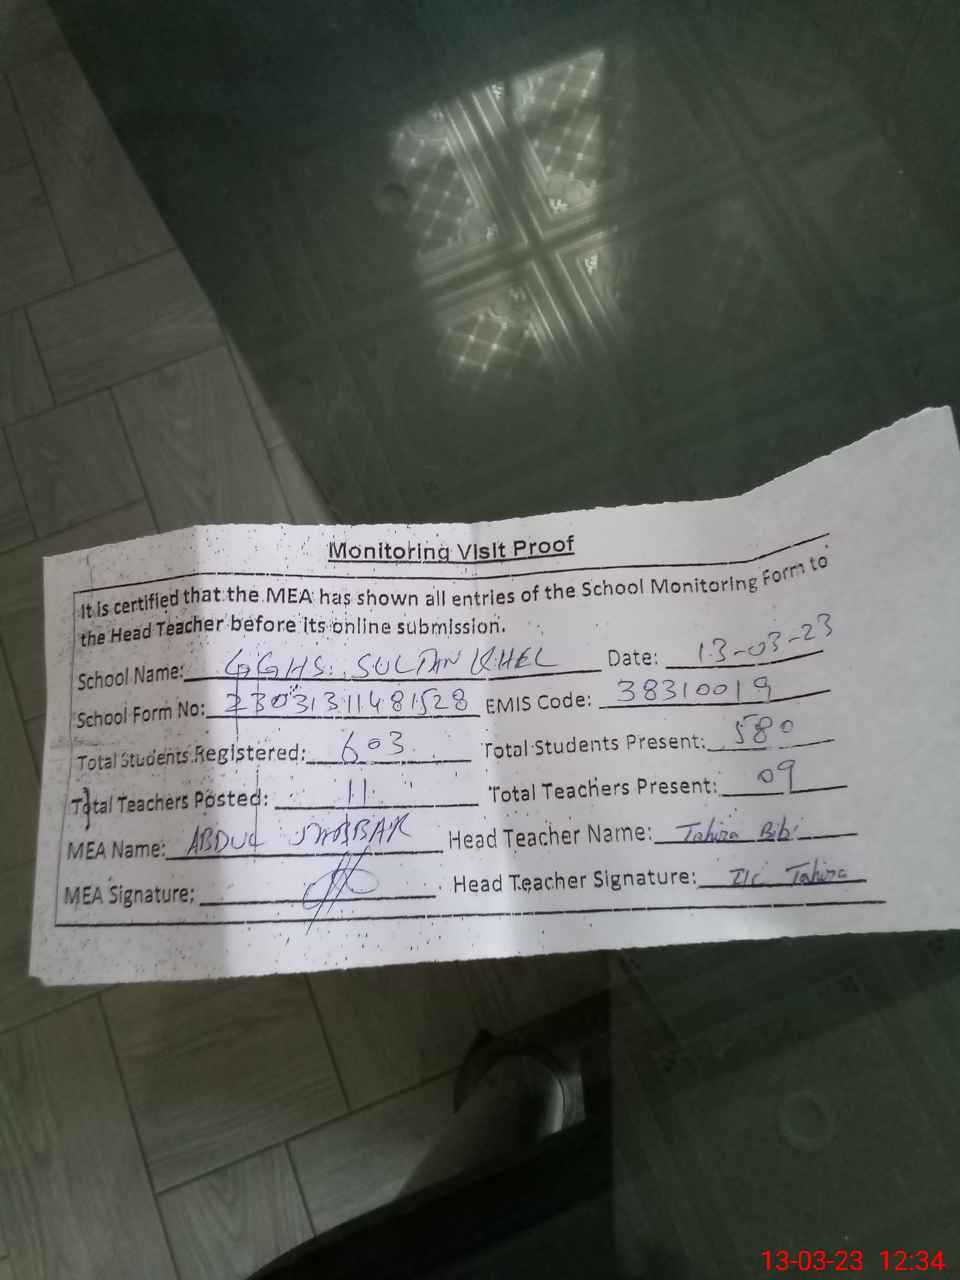 Monitoring Visit Proof
It is certified that the MEA has shown all entries of the School Monitoring Form to
the Head Teacher before its online submission.
School Name: GGHS. SULTAN KHEL Date: 13-03-23
School Form No: 23031311481528 EMIS Code: 38310019
Total Students Registered: 603 Total Students Present: 580
Total Teachers Posted: 11 Total Teachers Present: 09
MEA Name: ABDUL JABBAR Head Teacher Name: Tahira Bibi
MEA Signature: Head Teacher Signature: I/C Tahira
13-03-23 12:34